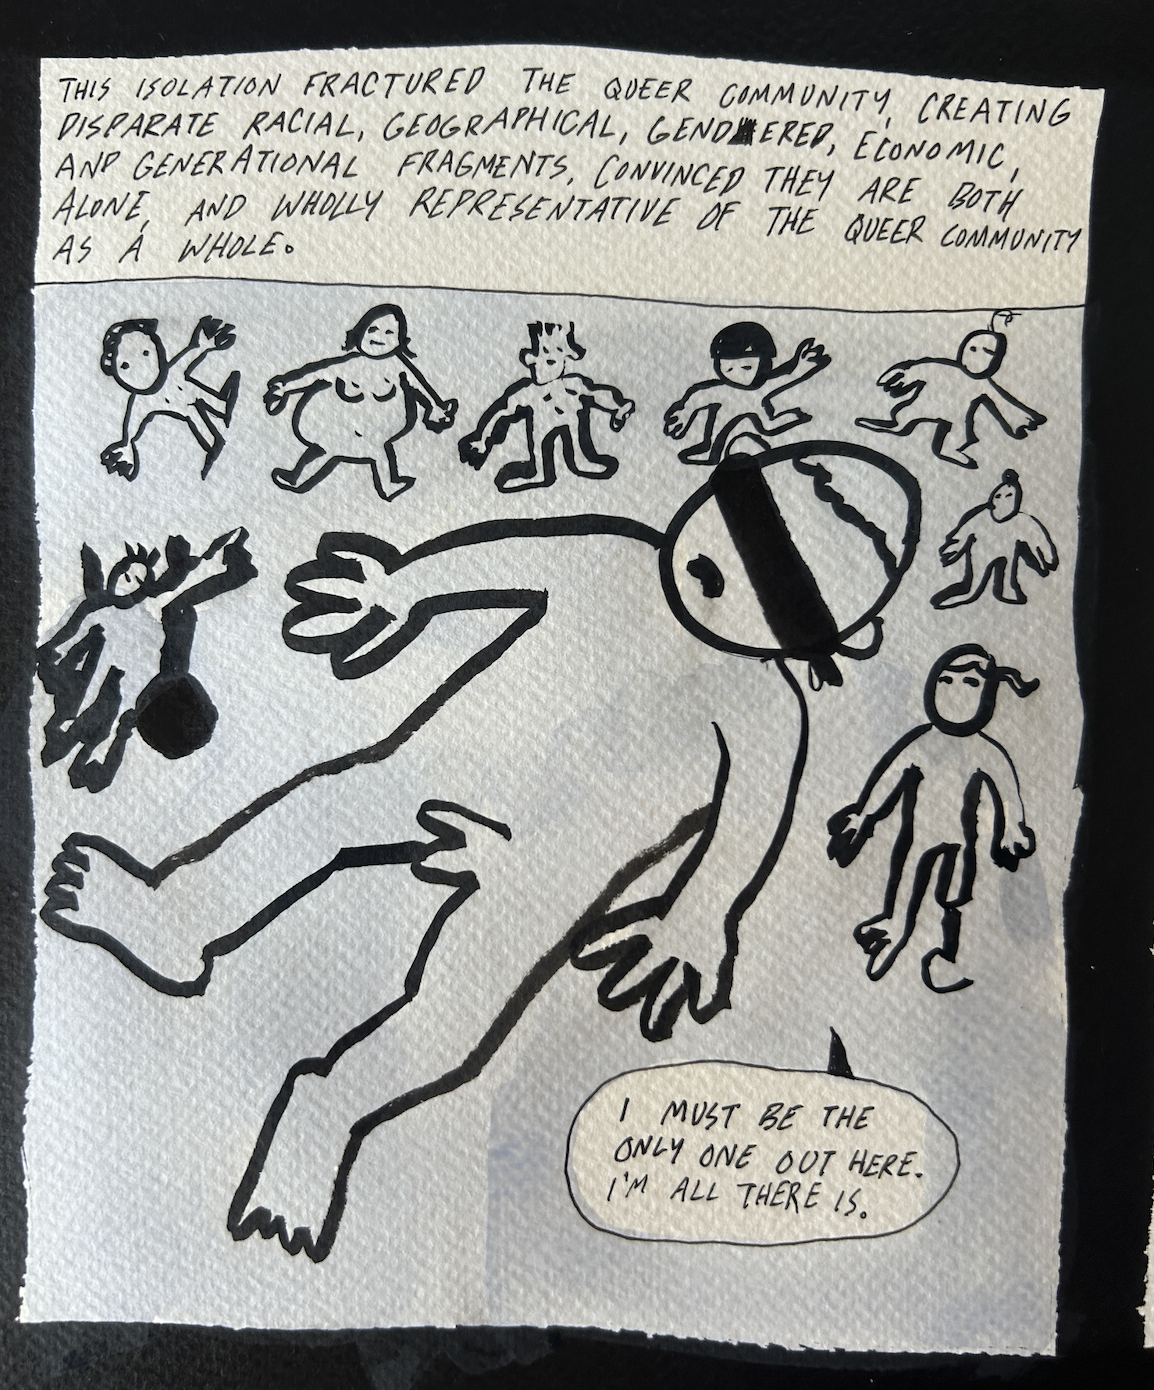 THIS ISOLATION FRACTURED THE QUEER COMMUNITY, CREATING
DISPARATE RACIAL, GEOGRAPHICAL, GENDERED, ECONOMIC,
AND GENERATIONAL FRAGMENTS, CONVINCED THEY ARE BOTH
ALONE, AND WHOLLY REPRESENTATIVE OF THE QUEER COMMUNITY
AS A WHOLE.
I MUST BE THE
ONLY ONE OUT HERE.
I'M ALL THERE IS.